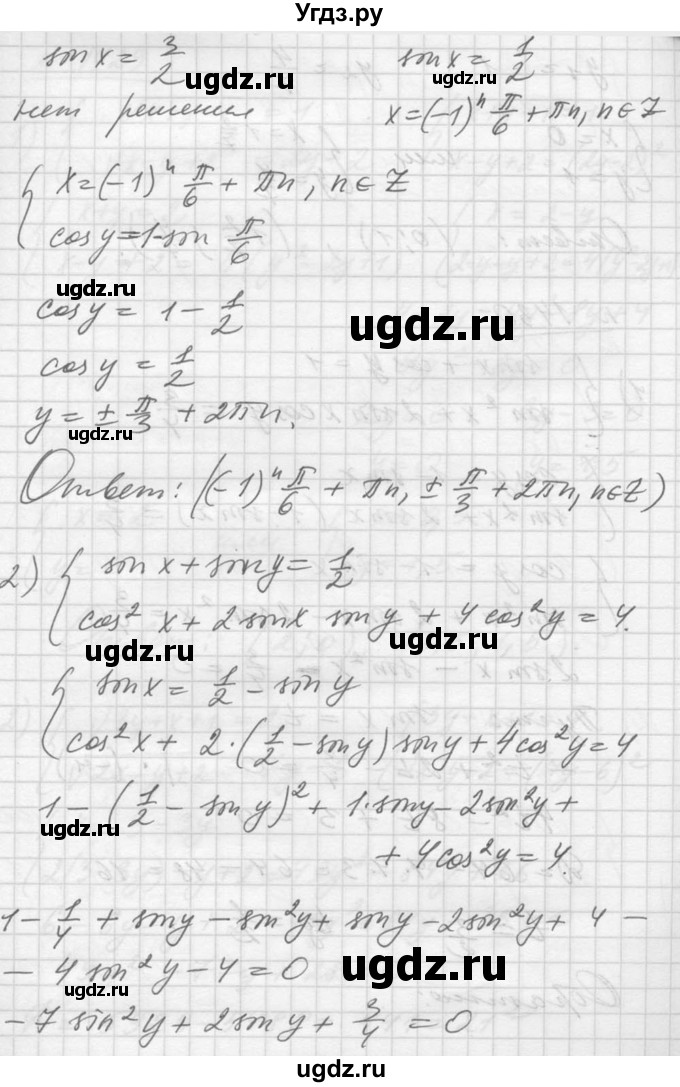 Угдз.ру
sin x = 3/2
sin x = 1/2
ugdz.ru
ugdz.ru
нет решения
x = (-1)^n π/6 + πn, n ∈ Z
{ x = (-1)^n π/6 + πn, n ∈ Z
cos y = 1 - sin π/6
ugdz.ru
cos y = 1 - 1/2
ugdz.ru
cos y = 1/2
y = ± π/3 + 2πn.
ugdz.ru
Ответ: ((-1)^n π/6 + πn, ± π/3 + 2πn, n ∈ Z)
2) { sin x + sin y = 1/2
cos² x + 2 sin x sin y + 4 cos² y = 4.
ugdz.ru
ugdz.ru
{ sin x = 1/2 - sin y
cos² x + 2·(1/2 - sin y) sin y + 4 cos² y = 4
1 - (1/2 - sin y)² + 1·sin y - 2 sin² y +
ugdz.ru
+ 4 cos² y = 4.
1 - 1/4 + sin y - sin² y + sin y - 2 sin² y + 4 -
- 4 sin² y - 4 = 0
ugdz.ru
ugdz.ru
- 7 sin² y + 2 sin y + 3/4 = 0
ugdz.ru